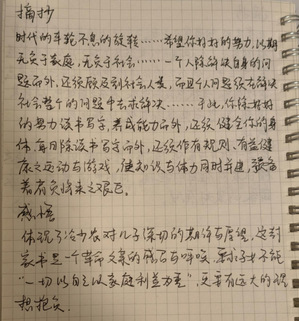 摘抄
时代的车轮不息的旋转……希望你好好的努力,以期
无负于家庭,无负于社会……一个人除解决自身的问
题而外,还须顾及到社会人类,而且个人问题须在解决
社会整个的问题中去求解决……于此,你除好好
的努力读书写字,养成能力而外,还须健全你的身
体,每日除读书写字而外,还须作有规则、有益健
康之运动与游戏,使知识与体力同时并进,预备
着肩负将来之艰巨。
感悟
体现了冷少农对儿子深切的期待与厚望,这封
家书是一个革命父亲的感召与呼唤,要求子女不能
“一切以自己以家庭利益为重”,更要有远大的理
想抱负.